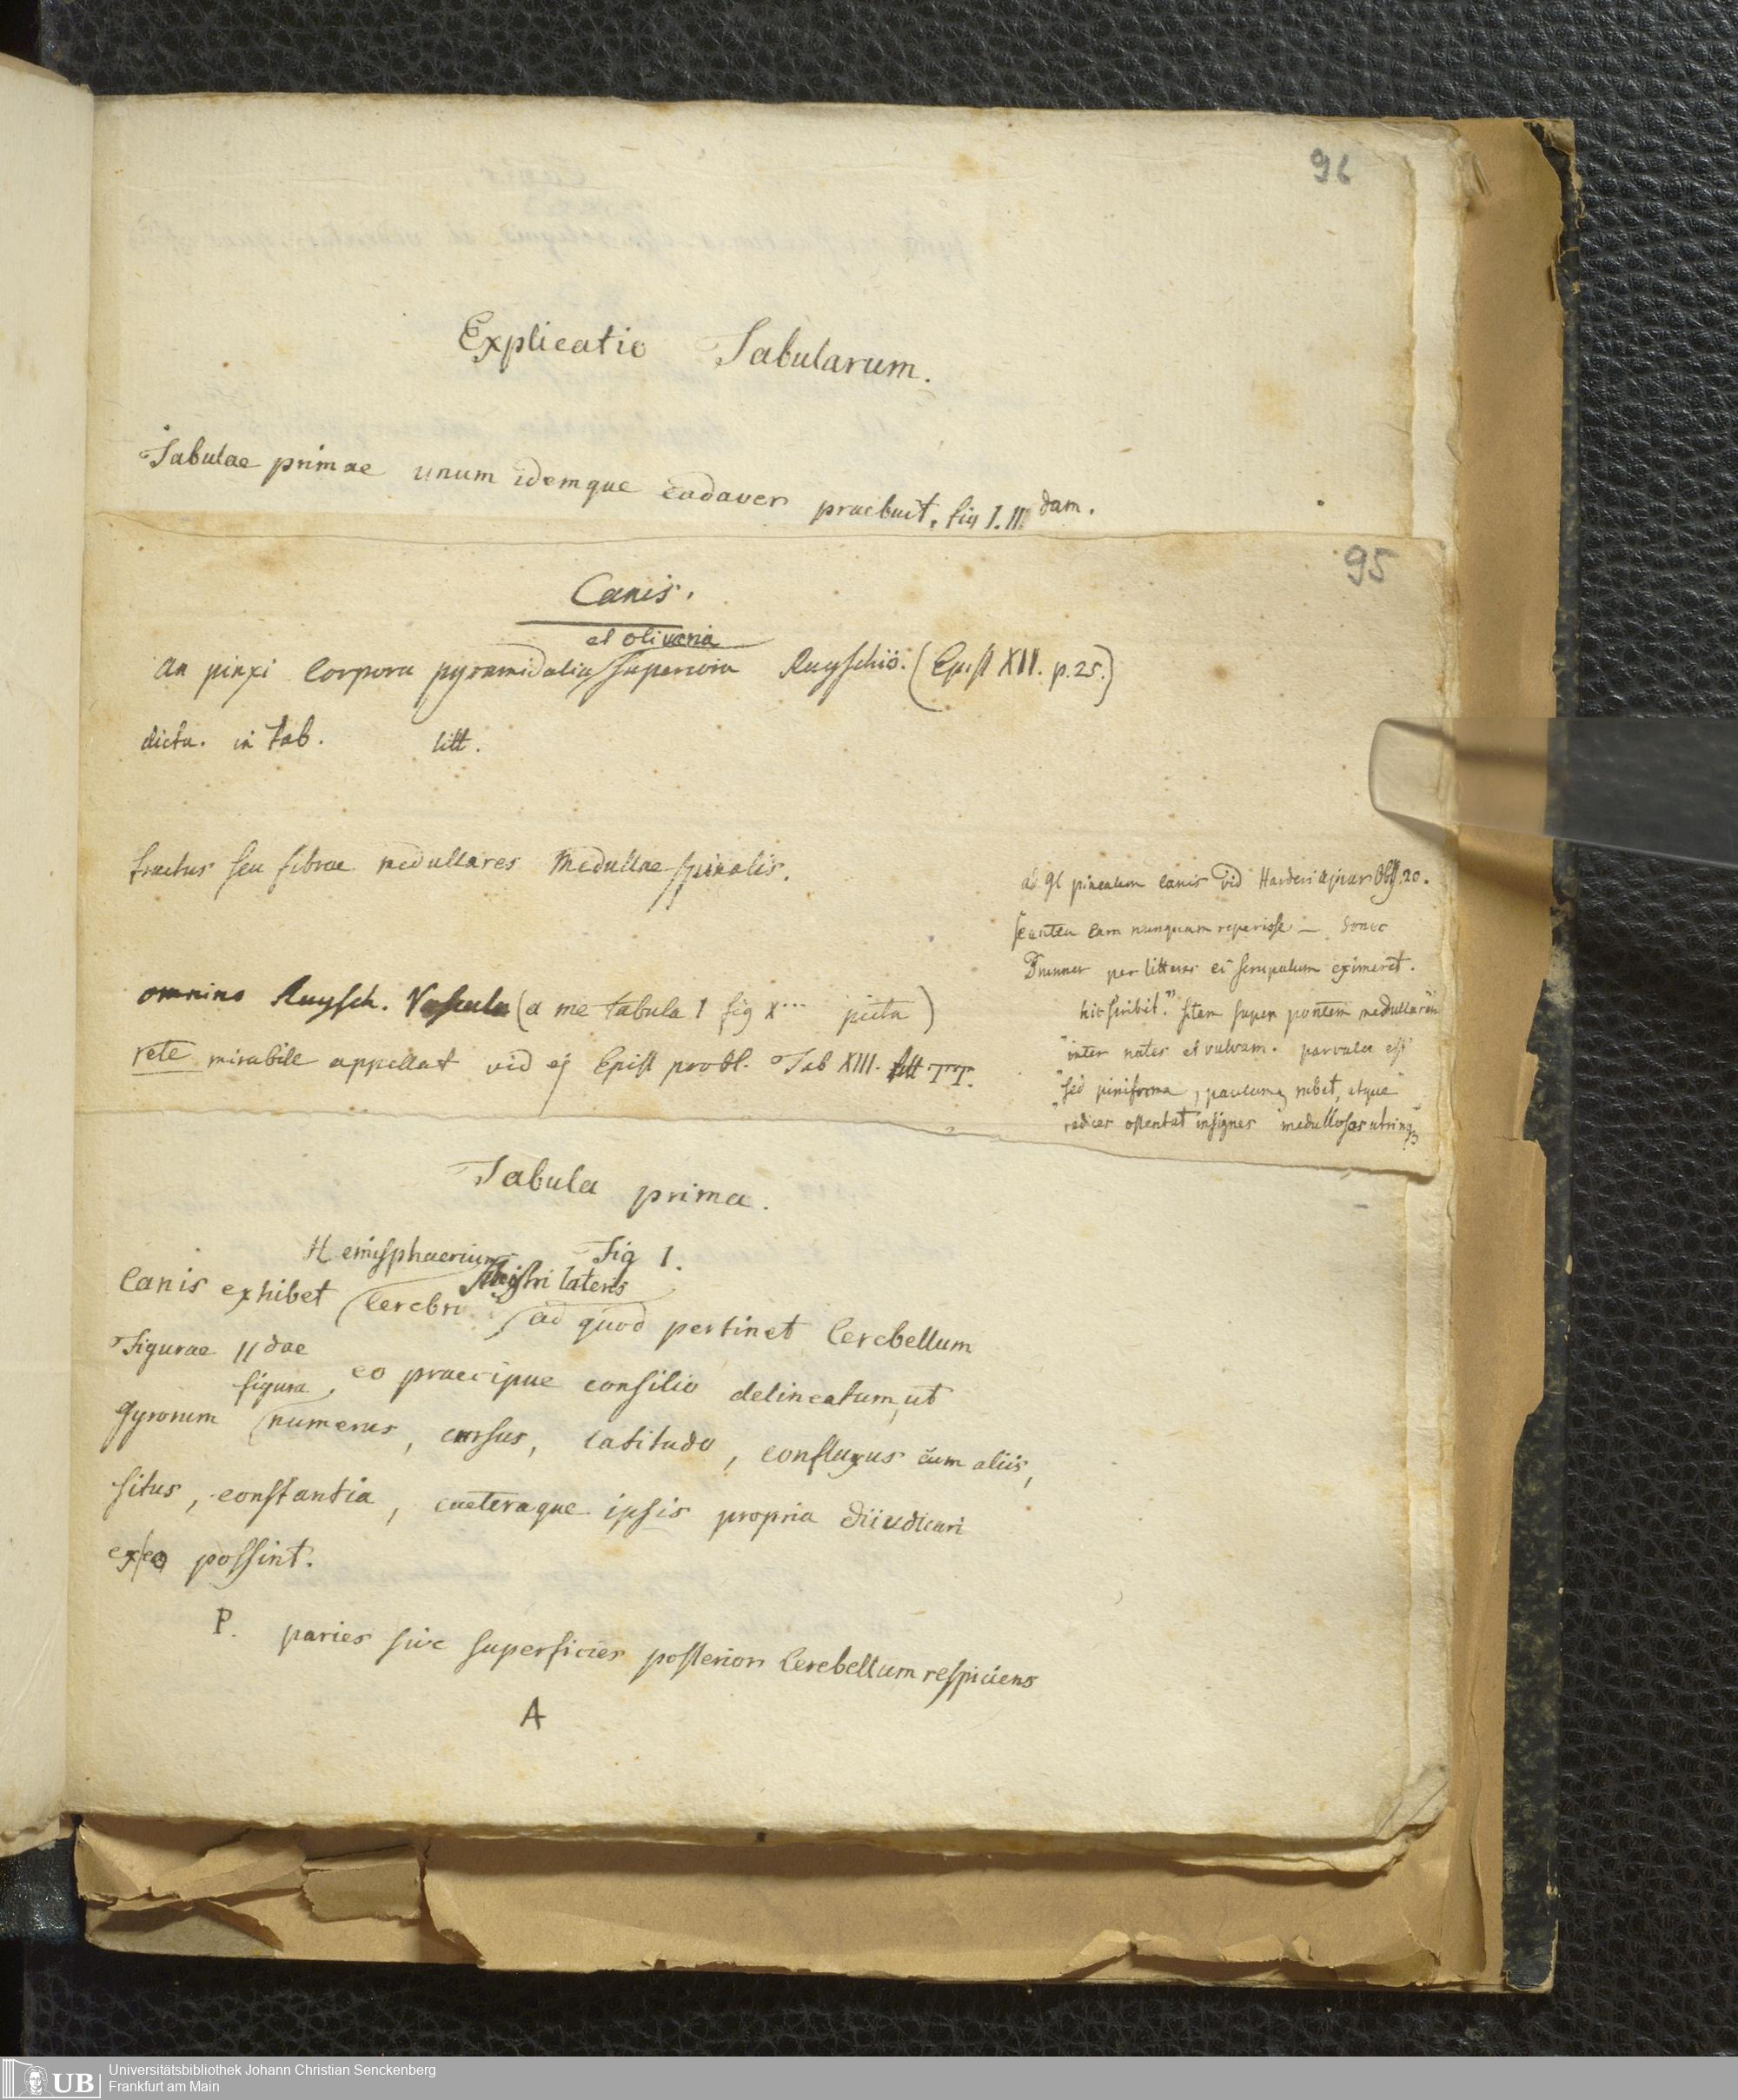 96
Explicatio Tabularum.
Tabulae primae unum idemque cadaver praebuit, fig I. II dam.
95
Canis.
et olivaria
An pinxi Corpora pyramidalia superiora Ruyschio. (Epist XII. p. 25.)
dicta. in tab. litt.
tractus seu fibrae medullares Medullae spinalis.
omnino Ruysch. Vascula (a me tabula I fig x... picta)
rete mirabile appellat vid ej Epist probl. Tab XIII. litt TT.
ad gl pinealem canis vid Harderi apiar Obss 20.
se antea eam nunquam reperisse — donec
Brunner per litteras ei scrupulum eximeret.
hic scribit." sitam super pontem medullarem
"inter nates et vulvam. parvula est"
"sed piniforma, paulumq rubet, atque"
"radices ostentat insignes medullosas utrinq
Tabula prima.
Fig I.
Hemisphaerium
sinistri lateris
Canis exhibet Cerebri ad quod pertinet Cerebellum
Figurae II dae
figura, eo praecipue consilio delineatum, ut
Gyrorum numerus, cursus, latitudo, confluxus cum aliis,
situs, constantia, caeteraque ipsis propria diiudicari
ex eo possint.
P. paries sive superficies posterior Cerebellum respiciens
A
UB
Universitätsbibliothek Johann Christian Senckenberg
Frankfurt am Main